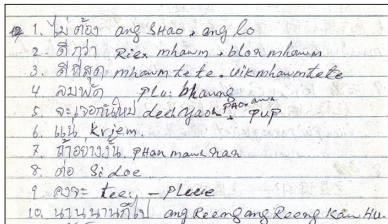 1. ไม่ต้อง ang SHao, ang lo
2. ดีกว่า Riex mhawm, blos mhawm
3. ดีที่สุด mhawm tete, vikmhawmtete
4. ลมพัด plu: bhawng
5. จะเจอกันใหม่ ded yaok pup
6. แน่ Krjem.
7. ถ้าอย่างงั้น. pHan mawh nan
8. ต่อ Si doe
9. คงจะ teey - pleee
10. นานนานทีไป ang Reeng ang Reeng Kaw Hu